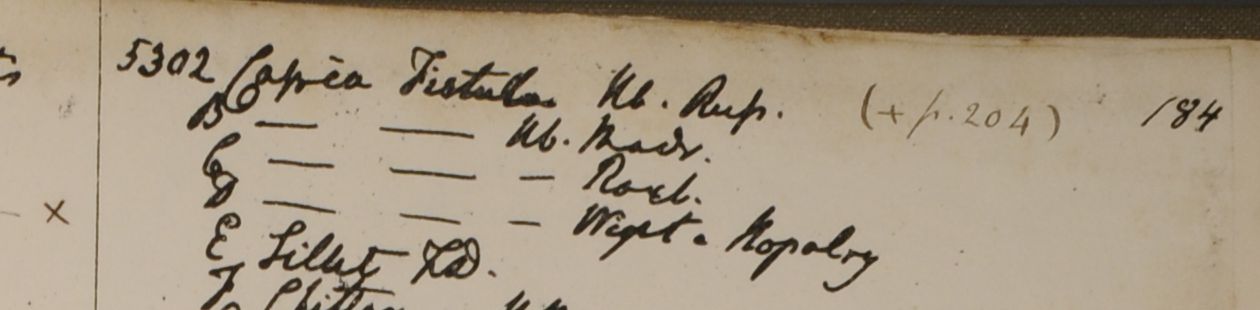 5302 Cassia Fistula Hb. Russ. (+ p. 204) 184
B — — Hb. Madr.
C — — — Roxb.
D — — — Wight.
E Sillet F.D.
F